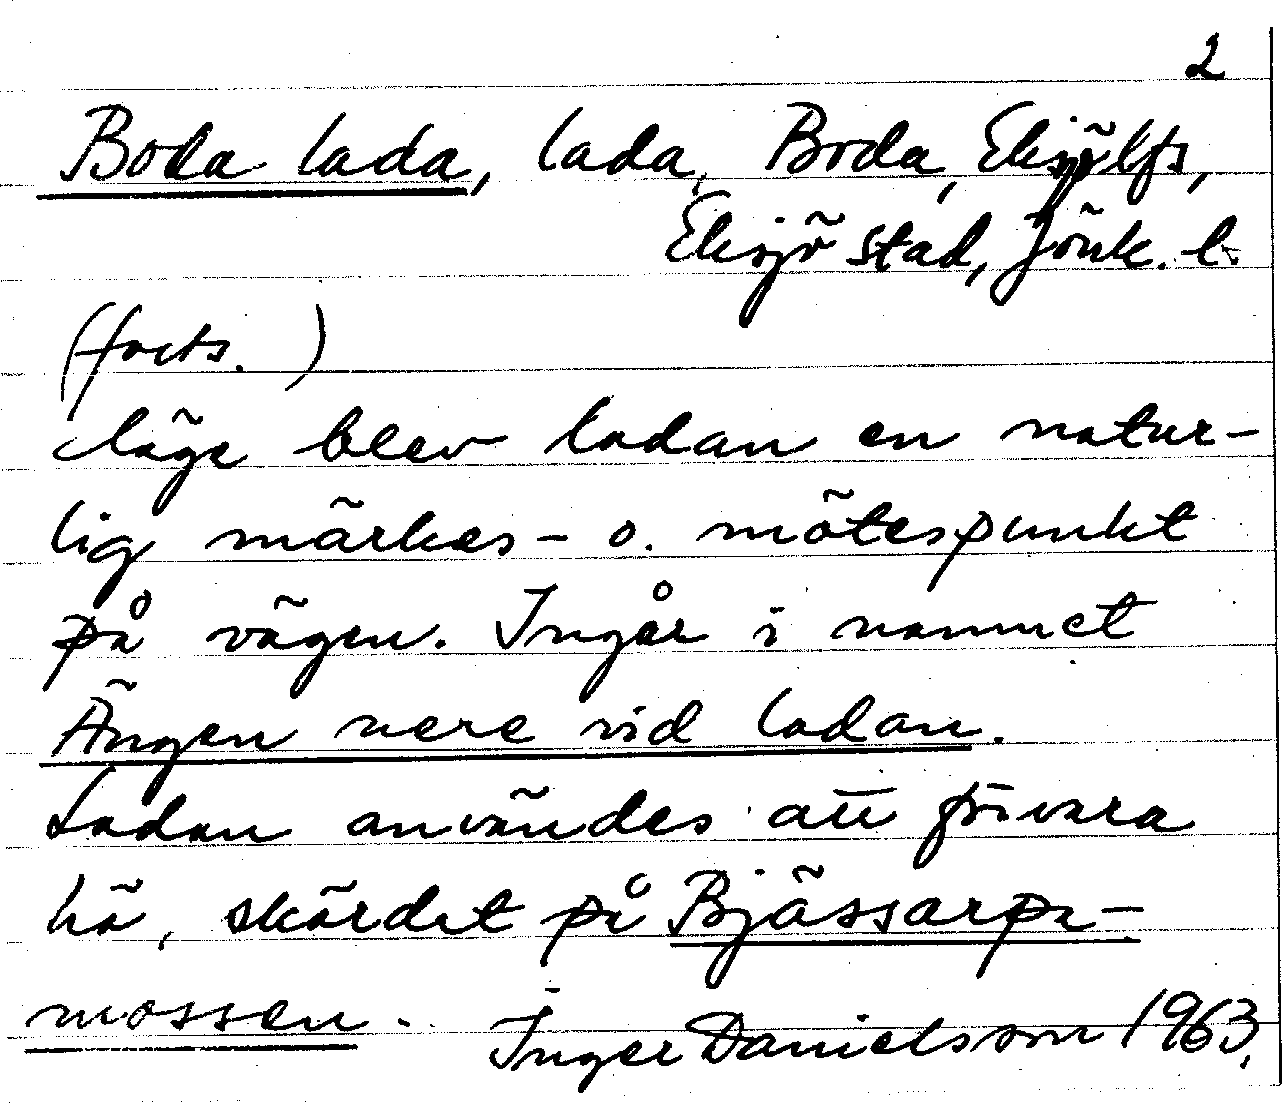 2
Boda lada, lada, Boda, Eksjö lfs,
Eksjö stad, Jönk. l.
(forts.)
läge blev ladan en natur-
lig märkes- o. mötespunkt
på vägen. Ingår i namnet
Ängen nere vid ladan.
Ladan användes att förvara
hö, skördet på Bjässarpa-
mossen. Inger Danielsson 1963.